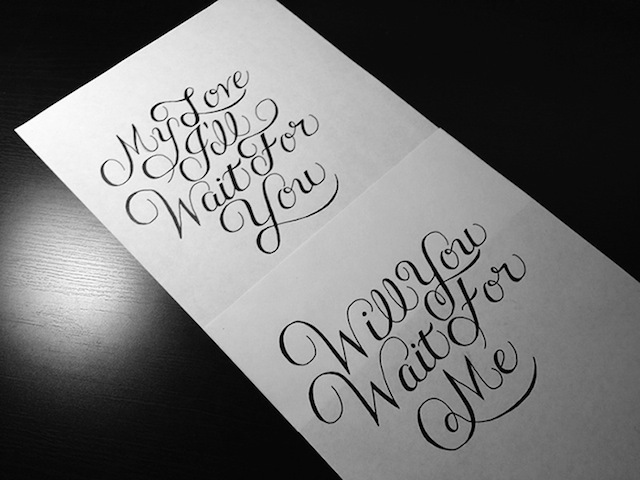 My Love
I'll
Wait For
You
Will You
Wait For
Me